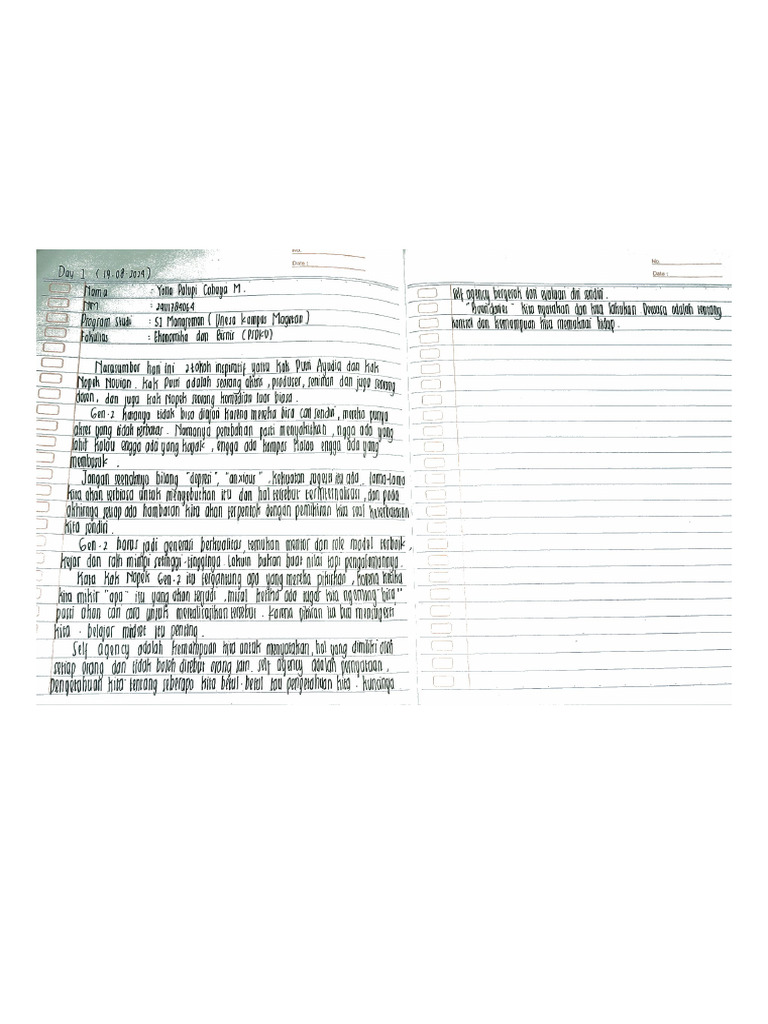 No.
Date :
Day 1 (19.08.2024)
Nama : Yona Palupi Cahaya M.
NIM :
Program studi : S1 Manajemen (Unesa Kampus Magetan)
Fakultas : Ekonomika dan Bisnis (PSDKU)
Narasumber hari ini 2 tokoh inspiratif yaitu kak Putri Ayudia dan kak
Nopek Novian. Kak Putri adalah seorang aktris, produser, seniman dan juga seorang
dosen, dan juga kak Nopek seorang komedian luar biasa.
Gen-Z katanya tidak bisa diajari karena mereka bisa cari sendiri, mereka punya
akses yang tidak terbatas. Namanya perubahan pasti menyakitkan, ngga ada yang
lahir kalau engga ada yang kapak, engga ada kompos kalau engga ada yang
membusuk.
Jangan seenaknya bilang "depresi", "anxious". Kekuatan sugesti itu ada, lama-lama
kita akan terbiasa untuk mengeluhkan itu dan hal tersebut terinternalisasi, dan pada
akhirnya setiap ada hambatan kita akan terpentok dengan pemikiran kita soal keterbatasan
kita sendiri.
Gen-Z harus jadi generasi berkualitas, temukan mentor dan role model terbaik,
kejar dan raih mimpi setinggi-tingginya lakuin bukan buat nilai tapi pengalamannya.
Kata kak Nopek Gen-Z itu tergantung apa yang mereka pikirkan, karena ketika
kita mikir "apa" itu yang akan terjadi, misal ketika ada tugas kita ngomong "bisa"
pasti akan cari cara untuk merealisasikan tersebut. Karena pikiran itu bisa mensugesti
kita. belajar midset itu penting.
Self agency adalah kemampuan kita untuk menyatakan, hal yang dimiliki oleh
setiap orang dan tidak boleh direbut orang lain. self agency adalah pernyataan,
pengetahuan kita tentang seberapa kita betul-betul tau pengetahuan kita. kuncinya
No.
Date :
self agency bergerak dan evaluasi diri sendiri.
kita nyatakan dan kita lakukan. Dewasa adalah tentang
kontrol dan kemampuan kita memaknai hidup.